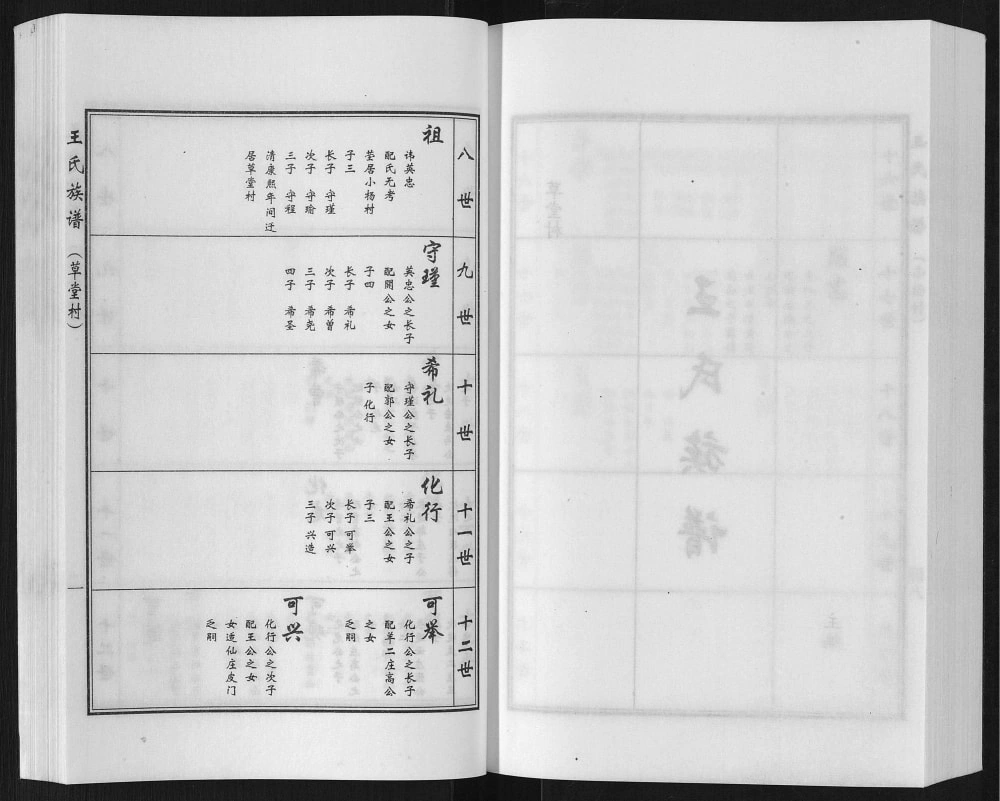 八世
祖
讳英忠
配氏无考
茔居小杨村
子三
长子 守瑾
次子 守瑜
三子 守程
清康熙年间迁
居草堂村
九世
守瑾
英忠公之长子
配閆公之女
子四
长子 希礼
次子 希曾
三子 希尧
四子 希圣
十世
希礼
守瑾公之长子
配郭公之女
子 化行
十一世
化行
希礼公之子
配王公之女
子三
长子 可举
次子 可兴
三子 兴造
十二世
可举
化行公之长子
配羊二庄高公
之女
乏嗣
可兴
化行公之次子
配王公之女
女适仙庄皮门
乏嗣
王氏族谱（草堂村）
一